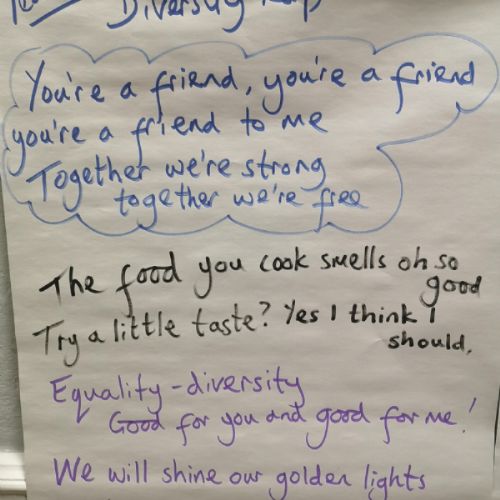 Diversity Rap
You're a friend, you're a friend
you're a friend to me
Together we're strong
together we're free
The food you cook smells oh so
good
Try a little taste? Yes I think I
should.
Equality - diversity
Good for you and good for me!
We will shine our golden lights